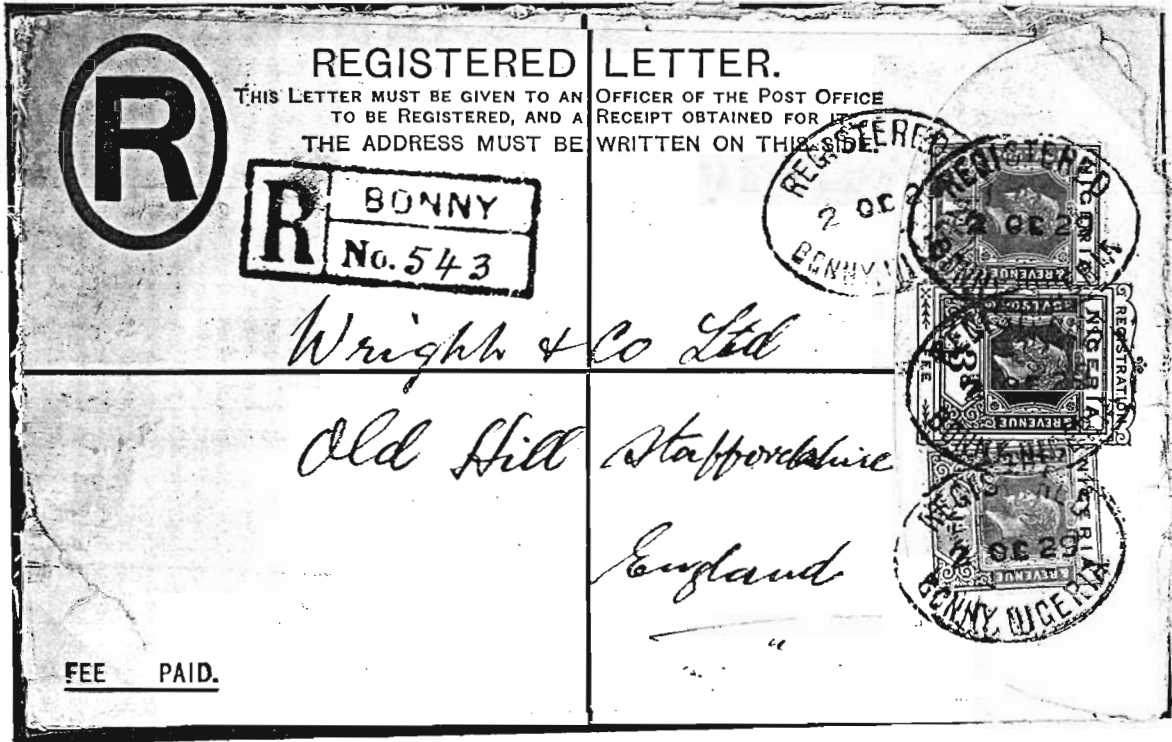 R
REGISTERED LETTER.
THIS LETTER MUST BE GIVEN TO AN OFFICER OF THE POST OFFICE
TO BE REGISTERED, AND A RECEIPT OBTAINED FOR IT.
THE ADDRESS MUST BE WRITTEN ON THIS SIDE.
R BONNY
No. 543
REGISTERED
2 OC 2
BONNY
REGISTERED
2 OC 29
NIGERIA
& REVENUE
REGISTRATION
FEE
NIGERIA
3d
REVENUE
NIGERIA
& REVENUE
2 OC 29
BONNY, NIGERIA
Wright & Co Ltd
Old Hill Staffordshire
England
"
FEE PAID.